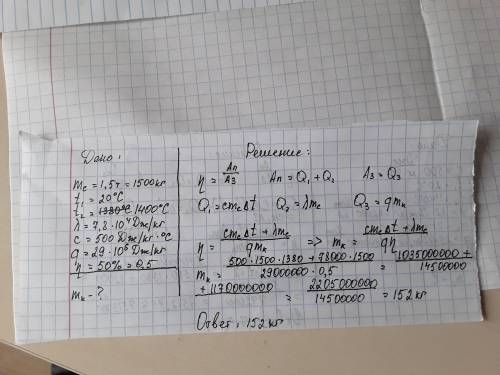 Дано:
m_c = 1,5т = 1500кг
t₁ = 20°C
t₂ = 1400°C
λ = 7,8·10⁴ Дж/кг
c = 500 Дж/кг·°C
q = 29·10⁶ Дж/кг
η = 50% = 0,5
m_к - ?
Решение:
η = Aп/Aз Aп = Q₁ + Q₂ Aз = Q₃
Q₁ = cm_cΔt Q₂ = λm_c Q₃ = qm_к
η = (cm_cΔt + λm_c)/(qm_к) => m_к = (cm_cΔt + λm_c)/(qη)
m_к = (500·1500·1380 + 78000·1500)/(29000000·0,5) = (1035000000 +
+ 1170000000)/14500000 = 2205000000/14500000 = 152 кг
Ответ: 152 кг